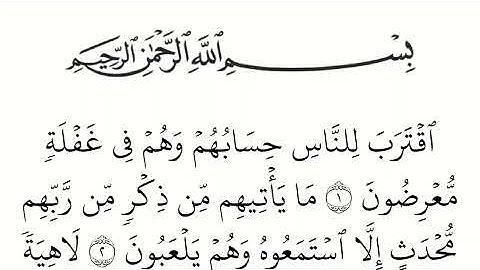 بِسْمِ ٱللَّهِ ٱلرَّحْمَٰنِ ٱلرَّحِيمِ
ٱقْتَرَبَ لِلنَّاسِ حِسَابُهُمْ وَهُمْ فِى غَفْلَةٍ
مُّعْرِضُونَ ١ مَا يَأْتِيهِم مِّن ذِكْرٍ مِّن رَّبِّهِم
مُّحْدَثٍ إِلَّا ٱسْتَمَعُوهُ وَهُمْ يَلْعَبُونَ ٢ لَاهِيَةً